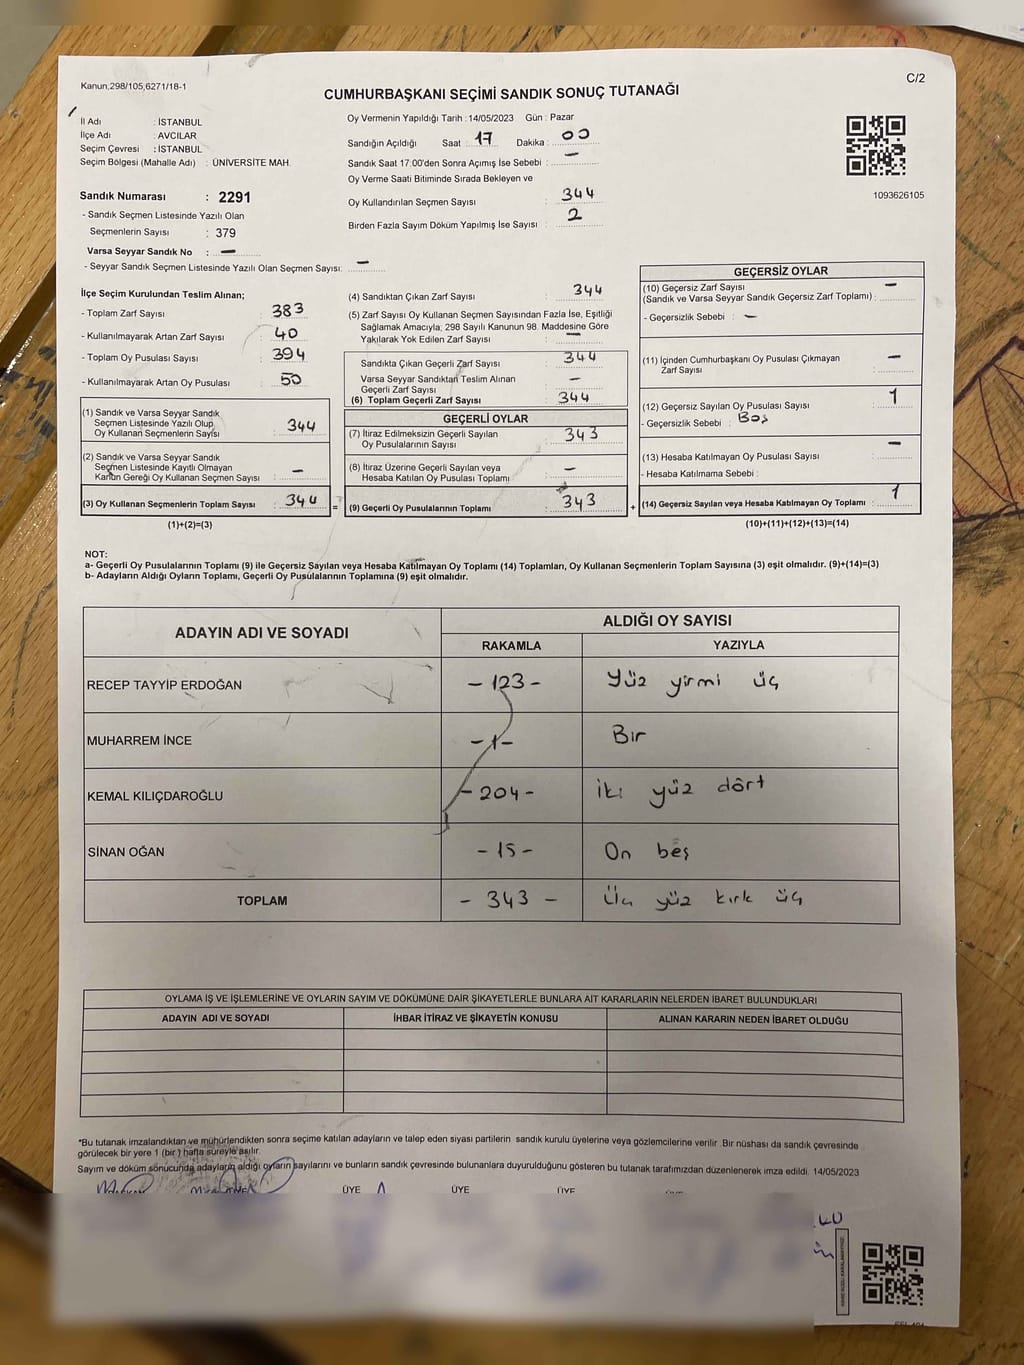 Kanun;298/105,6271/18-1
C/2
CUMHURBAŞKANI SEÇİMİ SANDIK SONUÇ TUTANAĞI
İl Adı : İSTANBUL
İlçe Adı : AVCILAR
Seçim Çevresi : İSTANBUL
Seçim Bölgesi (Mahalle Adı) : ÜNİVERSİTE MAH.
Sandık Numarası : 2291
- Sandık Seçmen Listesinde Yazılı Olan
Seçmenlerin Sayısı : 379
Varsa Seyyar Sandık No : —
- Seyyar Sandık Seçmen Listesinde Yazılı Olan Seçmen Sayısı: —
Oy Vermenin Yapıldığı Tarih : 14/05/2023 Gün : Pazar
Sandığın Açıldığı Saat : 17 Dakika : 00
Sandık Saat 17:00'den Sonra Açımış İse Sebebi : —
Oy Verme Saati Bitiminde Sırada Bekleyen ve
Oy Kullandırılan Seçmen Sayısı : 344
Birden Fazla Sayım Döküm Yapılmış İse Sayısı : 2
1093626105
İlçe Seçim Kurulundan Teslim Alınan;
- Toplam Zarf Sayısı : 383
- Kullanılmayarak Artan Zarf Sayısı : 40
- Toplam Oy Pusulası Sayısı : 394
- Kullanılmayarak Artan Oy Pusulası : 50
(1) Sandık ve Varsa Seyyar Sandık
Seçmen Listesinde Yazılı Olup
Oy Kullanan Seçmenlerin Sayısı : 344
(2) Sandık ve Varsa Seyyar Sandık
Seçmen Listesinde Kayıtlı Olmayan
Kanun Gereği Oy Kullanan Seçmen Sayısı : —
(3) Oy Kullanan Seçmenlerin Toplam Sayısı : 344
(1)+(2)=(3)
=
(4) Sandıktan Çıkan Zarf Sayısı : 344
(5) Zarf Sayısı Oy Kullanan Seçmen Sayısından Fazla İse, Eşitliği
Sağlamak Amacıyla; 298 Sayılı Kanunun 98. Maddesine Göre
Yakılarak Yok Edilen Zarf Sayısı : —
Sandıkta Çıkan Geçerli Zarf Sayısı : 344
Varsa Seyyar Sandıktan Teslim Alınan
Geçerli Zarf Sayısı : —
(6) Toplam Geçerli Zarf Sayısı : 344
GEÇERLİ OYLAR
(7) İtiraz Edilmeksizin Geçerli Sayılan
Oy Pusulalarının Sayısı : 343
(8) İtiraz Üzerine Geçerli Sayılan veya
Hesaba Katılan Oy Pusulası Toplamı : —
(9) Geçerli Oy Pusulalarının Toplamı : 343
+
GEÇERSİZ OYLAR
(10) Geçersiz Zarf Sayısı —
(Sandık ve Varsa Seyyar Sandık Geçersiz Zarf Toplamı) :
- Geçersizlik Sebebi : —
(11) İçinden Cumhurbaşkanı Oy Pusulası Çıkmayan —
Zarf Sayısı :
(12) Geçersiz Sayılan Oy Pusulası Sayısı : 1
- Geçersizlik Sebebi : Boş
(13) Hesaba Katılmayan Oy Pusulası Sayısı : —
- Hesaba Katılmama Sebebi :
(14) Geçersiz Sayılan veya Hesaba Katılmayan Oy Toplamı : 1
(10)+(11)+(12)+(13)=(14)
NOT:
a- Geçerli Oy Pusulalarının Toplamı (9) ile Geçersiz Sayılan veya Hesaba Katılmayan Oy Toplamı (14) Toplamları, Oy Kullanan Seçmenlerin Toplam Sayısına (3) eşit olmalıdır. (9)+(14)=(3)
b- Adayların Aldığı Oyların Toplamı, Geçerli Oy Pusulalarının Toplamına (9) eşit olmalıdır.
ADAYIN ADI VE SOYADI ALDIĞI OY SAYISI
RAKAMLA YAZIYLA
RECEP TAYYİP ERDOĞAN - 123 - Yüz yirmi üç
MUHARREM İNCE -1- Bir
KEMAL KILIÇDAROĞLU -204- iki yüz dört
SİNAN OĞAN -15- On beş
TOPLAM - 343 - Üç yüz kırk üç
OYLAMA İŞ VE İŞLEMLERİNE VE OYLARIN SAYIM VE DÖKÜMÜNE DAİR ŞİKAYETLERLE BUNLARA AİT KARARLARIN NELERDEN İBARET BULUNDUKLARI
ADAYIN ADI VE SOYADI İHBAR İTİRAZ VE ŞİKAYETİN KONUSU ALINAN KARARIN NEDEN İBARET OLDUĞU
*Bu tutanak imzalandıktan ve mühürlendikten sonra seçime katılan adayların ve talep eden siyasi partilerin sandık kurulu üyelerine veya gözlemcilerine verilir. Bir nüshası da sandık çevresinde
görülecek bir yere 1 (bir) hafta süreyle asılır.
Sayım ve döküm sonucunda adayların aldığı oyların sayılarını ve bunların sandık çevresinde bulunanlara duyurulduğunu gösteren bu tutanak tarafımızdan düzenlenerek imza edildi. 14/05/2023
ÜYE ÜYE ÜYE